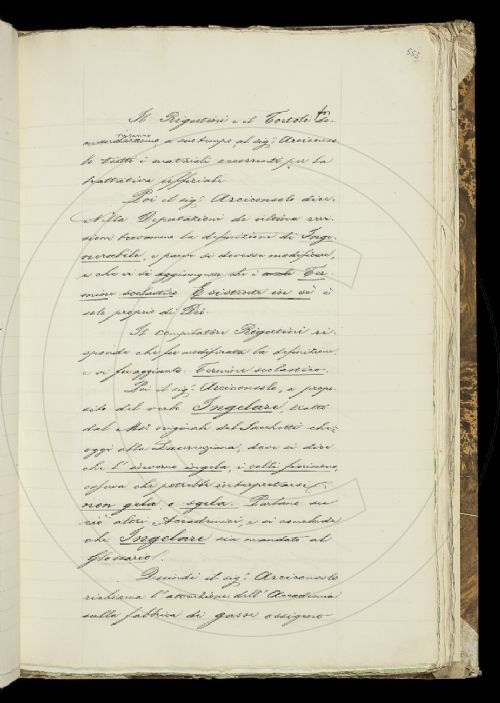 558
Il Rigutini e il Tortoli
a suo tempo al sig.r Arciconso-
lo tutti i materiali occorrenti per la
trattativa ufficiale.
Poi il sig.r Arciconsolo dice.
Nella Deputazione di ultima revi-
sione trovammo la definizione di Inge-
nerabile, e parve si dovesse modificare,
e che vi si aggiungesse che è anche Ter-
mine scolastico. Esistente in sè è
solo proprio di Dio.
Il compilatore Rigutini ri-
sponde che fu modificata la definizione
e vi fu aggiunto: Termine scolastico.
Poi il sig.r Arciconsolo, a propo-
sito del verbo Ingelare, tratto
dal Ms. originale del Sacchetti che è
oggi alla Laurenziana, dove si dice
che l'
cosa che potrebbe interpretarsi:
non gela o sgela. Parlano su
ciò altri Accademici, e si conclude
che Ingelare sia mandato al
Glossario.
Quindi il sig.r Arciconsolo
richiama l'attenzione dell'Accademia
sulla fabbrica di